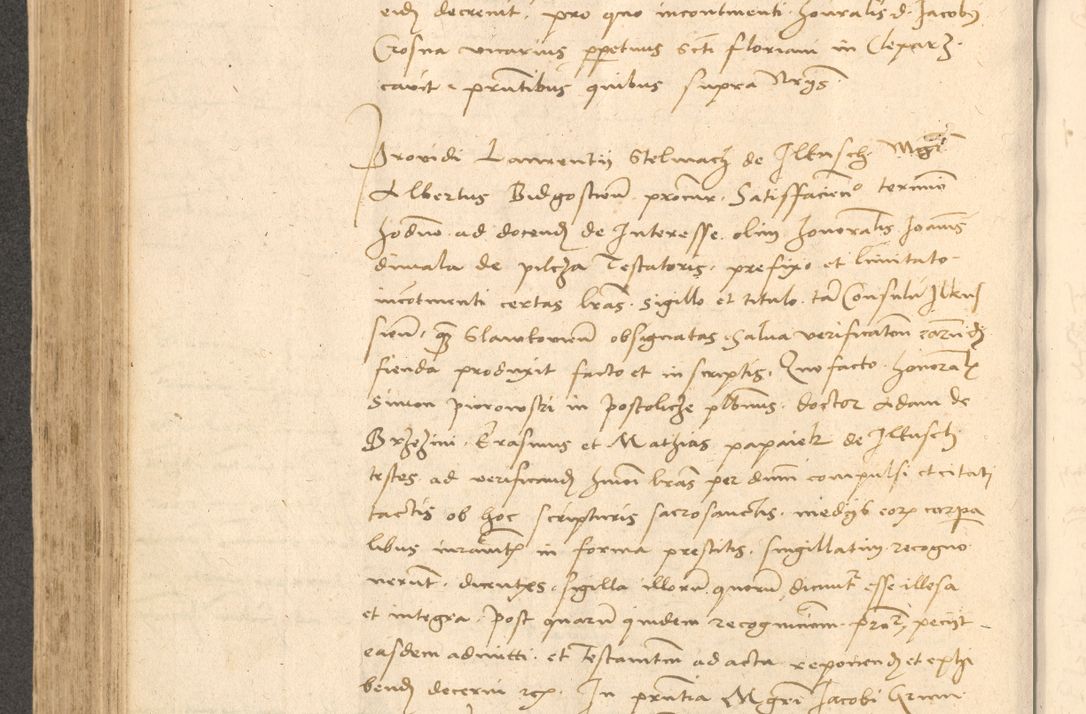 eidem decrevit, pro quo incontinenti honralis d. Jacobus
Crosna vicarius ppetuus Scti floriani in Cleparz
cavit, pntibus quibus supra Nrijs
Providi Laurentij Stelmach de Ilkusch Mgr
Albertus Bidgostien procur. Satisfacien termino
hodierno ad docend de Interesse olim honoralis Joannis
dimala de pilcza Testatoris, prefixo et limitato
incotinenti certas lras sigillo et titulo tam Consulu Ilkus
sien, qz Slawkovien obsignatas, salva verificaton earund
fienda produxit facto et in scriptis, Quo facto honoral
Simon piorowski in postolicze plbnus, doctor Adam de
Brzezini, Erasmus et Mathias papaiek de Ilkusch
testes ad verificand hmoi lras per dnum compulsi et citati
tactis ob hoc scripturis sacrosanctis, medys eorz corpa
libus iuramtis in forma prestitis, singillatim recogno
nerunt, dicentes, sigilla illorum quorum dicuntr esse illesa
et integra, Post quarum quidem recognicionem procr, peciit
easdem admitti, et Testamtum ad acta reponend et exhi
bend decerni rcz. In pntia Mgri Jacobi